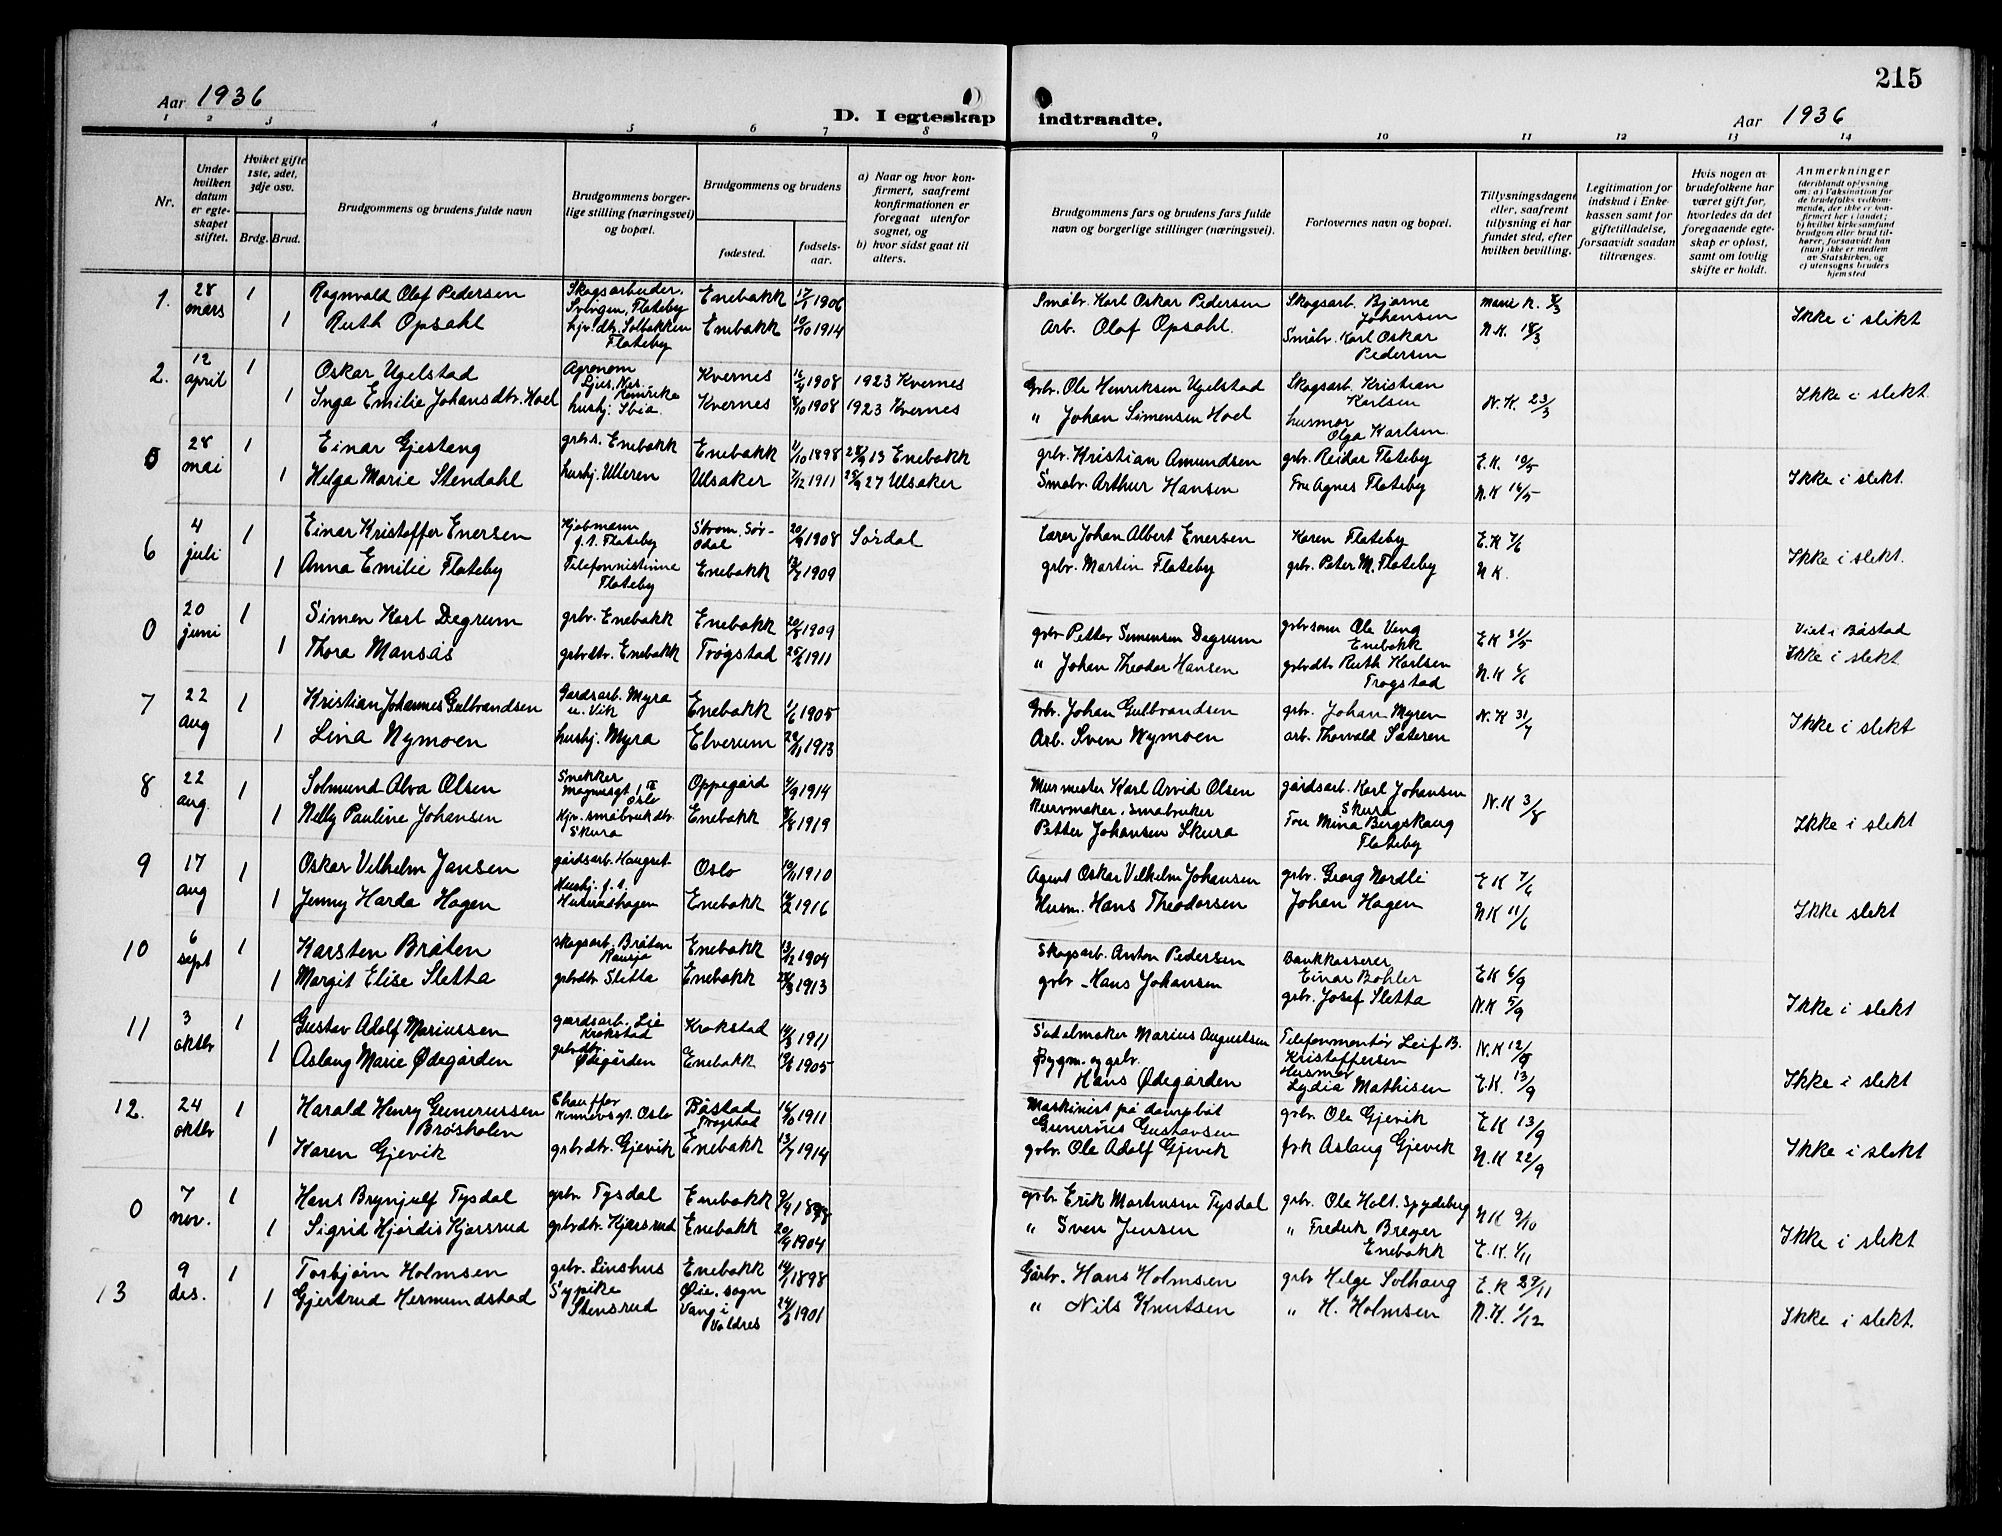 215
Aar 1936
D. I egteskap indtraadte.
Aar 1936
1 2 3 4 5 6 7 8 9 10 11 12 13 14
Nr.
Under hvilken datum er egteskapet stiftet.
Hvilket gifte 1ste, 2det, 3dje osv.
Brdg. Brud.
Brudgommens og brudens fulde navn
Brudgommens borgerlige stilling (næringsvei) og bopæl.
Brudgommens og brudens
fødested.
fødselsaar.
a) Naar og hvor konfirmert, saafremt konfirmationen er foregaat utenfor sognet, og
b) hvor sidst gaat til alters.
Brudgommens fars og brudens fars fulde navn og borgerlige stillinger (næringsvei).
Forlovernes navn og bopæl.
Tillysningsdagene eller, saafremt tillysning ei har fundet sted, efter hvilken bevilling.
Legitimation for indskud i Enkekassen samt for giftetilladelse, forsaavidt saadan tiltrænges.
Hvis nogen av brudefolkene har været gift før, hvorledes da det foregaaende egteskap er opløst, samt om lovlig skifte er holdt.
Anmerkninger
(deriblandt oplysning om: a) Vaksination for de brudefolks vedkommende, der ikke er konfirmert her i landet; b) hvilket kirkesamfund brudgom eller brud tilhører, forsaavidt han (hun) ikke er medlem av Statskirken, og c) utensogns bruders hjemsted
1. 28 mars 1 Ragnvald Olaf Pedersen Skogsarbeider, Flateby Enebakk 17/1 1906 Småbr. Karl Oskar Pedersen Skogsarb. Bjarne Johansen
1 Ruth Opsahl hjv. dtr. Solbakken Flateby Enebakk 19/10 1914 Arb. Olaf Opsahl. Småbr. Karl Oskar Pedersen N.K. 18/3 Ikke i slekt
2. 12 april 1 Oskar Ugelstad Agronom Kvernes 16/9 1908 1923 Kvernes Grbr. Ole Henriksen Ugelstad Skogsarb. Kristian Karlsen
1 Inga Emilie Johansdtr. Hoel hushj. Ibid. Kvernes 1908 1923 Kvernes " Johan Simensen Hoel husmor Olga Karlsen N.K. 23/3 Ikke i slekt.
5 28 mai 1 Einar Gjestang grbr.s. Enebakk Enebakk 1/10 1898 13 Enebakk grbr. Kristian Amundsen grbr. Reidar Flateby E.K. 10/5
1 Helga Marie Stendahl hushj. Ulleren Ulsaker 7/12 1911 27 Ulsaker Småbr. Arthur Hansen Fru Agnes Flateby N.K 16/5 Ikke i slekt.
6 4 juli 1 Einar Kristoffer Enersen Kjøbmann f.t. Flateby Strøm, Sør-Odal 1908 Sørdal Lærer Johan Albert Enersen Karen Flateby E.K 7/6
1 Anna Emilie Flateby Telefonistinne Flateby Enebakk 1909 grbr. Martin Flateby grbr. Peter M. Flateby N K. Ikke i slekt.
0 20 juni 1 Simen Karl Degrum grbr. Enebakk Enebakk 1909 grbr Petter Simensen Degrum grbrsønn Ole Veng Enebakk E K 31/5 Viet i Båstad
1 Thora Mansås grbrdtr. Enebakk Trøgstad 1911 " Johan Theodor Hansen grbrdtr Ruth Karlsen Trøgstad N.K Ikke i slekt
7 22 aug 1 Kristian Johannes Gulbrandsen Gårdsarb. Myra u. Vik Enebakk 1/6 1905 Grbr. Johan Gulbrandsen grbr. Johan Myren N.K 31/7
1 Lina Nymoen hushj. Myra Elverum 1913 Arb. Sven Nymoen arb. Thorvald Sæteren Ikke i slekt
8 22 aug. 1 Solmund Alva Olsen Snekker Oslo Oppegård 4/9 1914 Murmester Karl Arvid Olsen gårdsarb. Karl Johansen Skura N.K 3/8
1 Nelly Pauline Johansen Hjv. småbrukdtr. Skura Enebakk 1919 Kurvmaker, Småbruker Petter Johansen Skura Fru Mina Bergskaug Flateby Ikke i slekt
9 17 aug 1 Oskar Vilhelm Jansen gårdsarb. Haugset Oslo 1910 Agent Oskar Vilhelm Johansen grbr. Georg Nordli E K 7/6
1 Jenny Harda Hagen Hushj. f.t. Enebakk 1916 Husm. Hans Theodorsen Johan Hagen N K 11/6 Ikke slekt
10 6 sept 1 Karsten Bråten skogsarb. Bråten Rausjø Enebakk 13/12 1904 Skogsarb. Anton Pedersen Bankkasserer Einar Bøhler E K 6/9
1 Margit Elise Sletta grbrdtr Sletta Enebakk 1913 grbr Hans Johansen grbr. Josef Sletta N.K 5/9 Ikke i slekt
11 3 oktbr 1 Gustav Adolf Mariussen gårdsarb. Lie Krokstad Krokstad 1911 Sadelmaker Marius Augustsen Telefonmontør Leif B. Kristoffersen N.K 12/9
1 Aslaug Marie Ødegården grbrdtr. Ødegården Enebakk 1905 Bygm. og grbr. Hans Ødegården Husmor Lydia Mathisen E.K. 13/9 Ikke i slekt
12. 24 oktbr 1 Harald Henry Gunerussen Brøsholen Chauffør Oslo Båstad Trøgstad 1911 Maskinist på dampbåt Gunerius Gustavsen grbr. Ole Gjevik E K 13/9
1 Karen Gjevik grbrdtr. Gjevik Enebakk 13/7 1914 grbr. Ole Adolf Gjevik frk Aslaug Gjevik N.K 22/9 Ikke i slekt
0 7 nov. 1 Hans Brynjulf Tysdal grbr. Tysdal Enebakk 9/4 1898 grbr Erik Martinsen Tysdal grbr. Ole Holt. Spydeberg N K 9/10
1 Sigrid Hjørdis Kjærsrud grbrdtr. Kjærsrud Enebakk 20/9 1904 " Sven Jensen " Frederk Breyer Enebakk E.K. 1/11 Ikke i slekt
13 9 des. 1 Torbjørn Holmsen grbr. Linshus Enebakk 14/1 1898 Gårbr. Hans Holmsen grbr Helge Solhaug E.K 29/11
1 Gjertrud Hermundstad Sypike Stensrud Øie sogn Vang i Valdres 1901 " Nils Knutsen " H. Holmsen N.K. 1/12 Ikke i slekt.